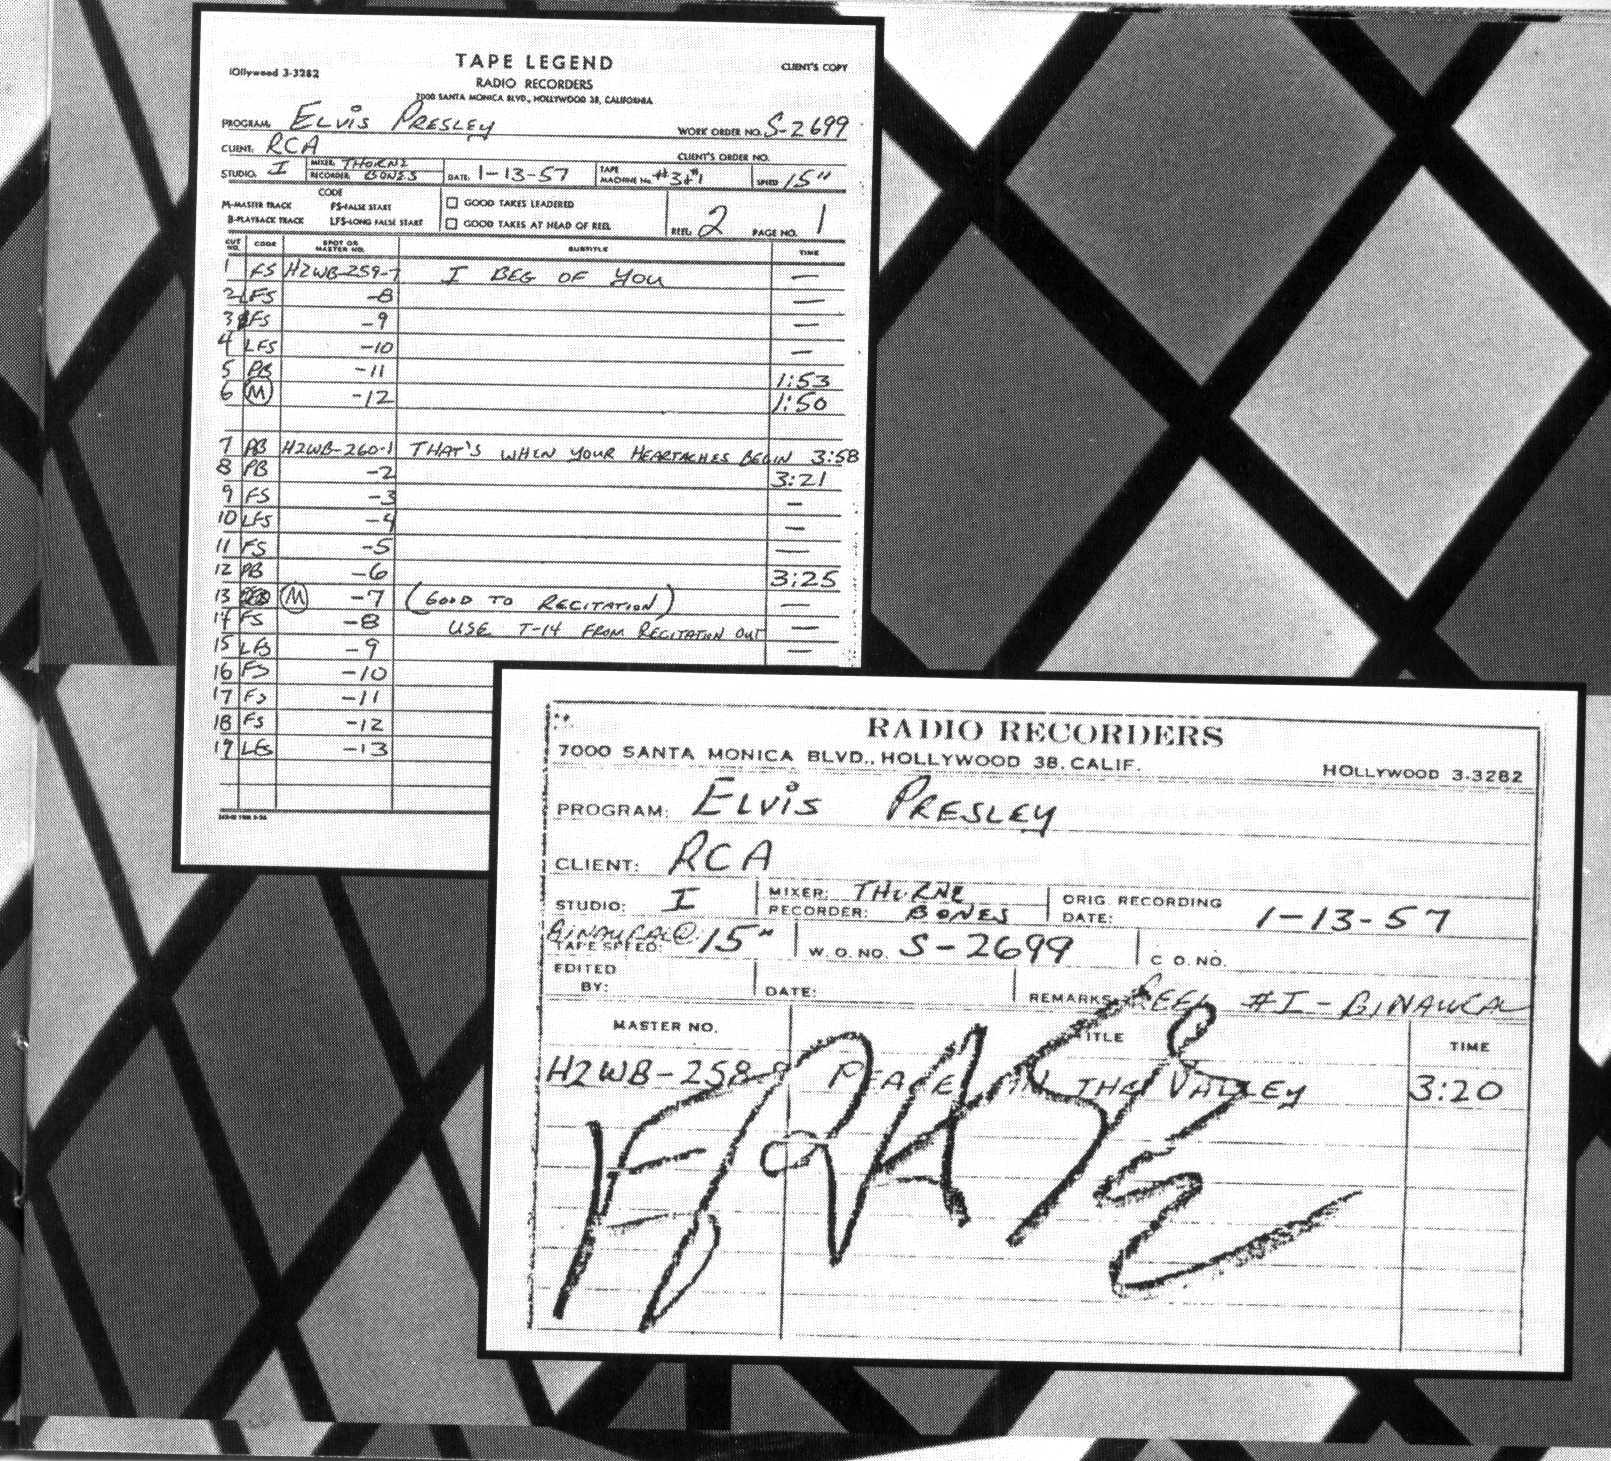 TAPE LEGEND
HOllywood 3-3282
CLIENT'S COPY
RADIO RECORDERS
7000 SANTA MONICA BLVD., HOLLYWOOD 38, CALIFORNIA
PROGRAM: ELVIS PRESLEY WORK ORDER NO. S-2699
CLIENT: RCA CLIENT'S ORDER NO.
STUDIO: I MIXER: THORNE RECORDER: BONES DATE: 1-13-57 TAPE MACHINE No. #3&#1 SPEED 15"
CODE
M-MASTER TRACK FS-FALSE START GOOD TAKES LEADERED
B-PLAYBACK TRACK LFS-LONG FALSE START GOOD TAKES AT HEAD OF REEL REEL 2 PAGE NO. 1
CUT NO. CODE SPOT OR MASTER NO. SUBTITLE TIME
1 FS H2WB-259-7 I BEG OF YOU —
2 LFS -8 —
3 LFS -9 —
4 LFS -10 —
5 PB -11 1:53
6 M -12 1:50
7 PB H2WB-260-1 THAT'S WHEN YOUR HEARTACHES BEGIN 3:58
8 PB -2 3:21
9 FS -3 —
10 LFS -4 —
11 FS -5 —
12 PB -6 3:25
13 M -7 (GOOD TO RECITATION) —
14 FS -8 USE T-14 FROM RECITATION OUT —
15 LFS -9 —
16 FS -10
17 FS -11
18 FS -12
19 LFS -13
RADIO RECORDERS
7000 SANTA MONICA BLVD., HOLLYWOOD 38, CALIF. HOLLYWOOD 3-3282
PROGRAM: ELVIS PRESLEY
CLIENT: RCA
STUDIO: I MIXER: THORNE RECORDER: BONES ORIG. RECORDING DATE: 1-13-57
BINAURAL TAPE SPEED: 15" W.O. NO. S-2699 C.O. NO.
EDITED BY: DATE: REMARKS: REEL #I - BINAURAL
MASTER NO. TITLE TIME
H2WB-258 PEACE IN THE VALLEY 3:20